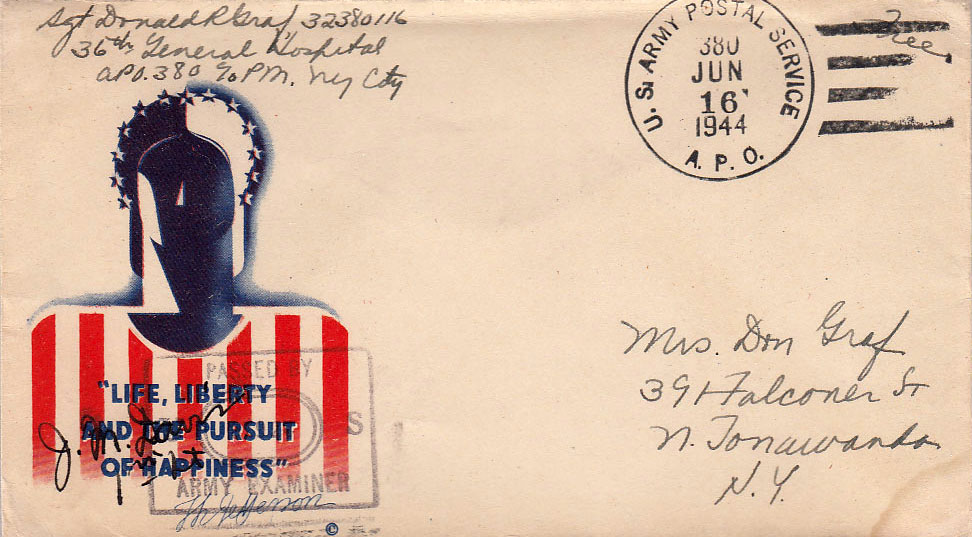 Sgt Donald R Graf 32380116
36th General Hospital
A.P.O. 380 % P.M. Ny City
U.S. ARMY POSTAL SERVICE
380
JUN
16
1944
A. P. O.
Free
Mrs. Don Graf
391 Falconer St
N. Tonawanda
N.Y.
PASSED BY
S
ARMY EXAMINER
"LIFE, LIBERTY
AND THE PURSUIT
OF HAPPINESS"
J. M.
Th Jefferson
©